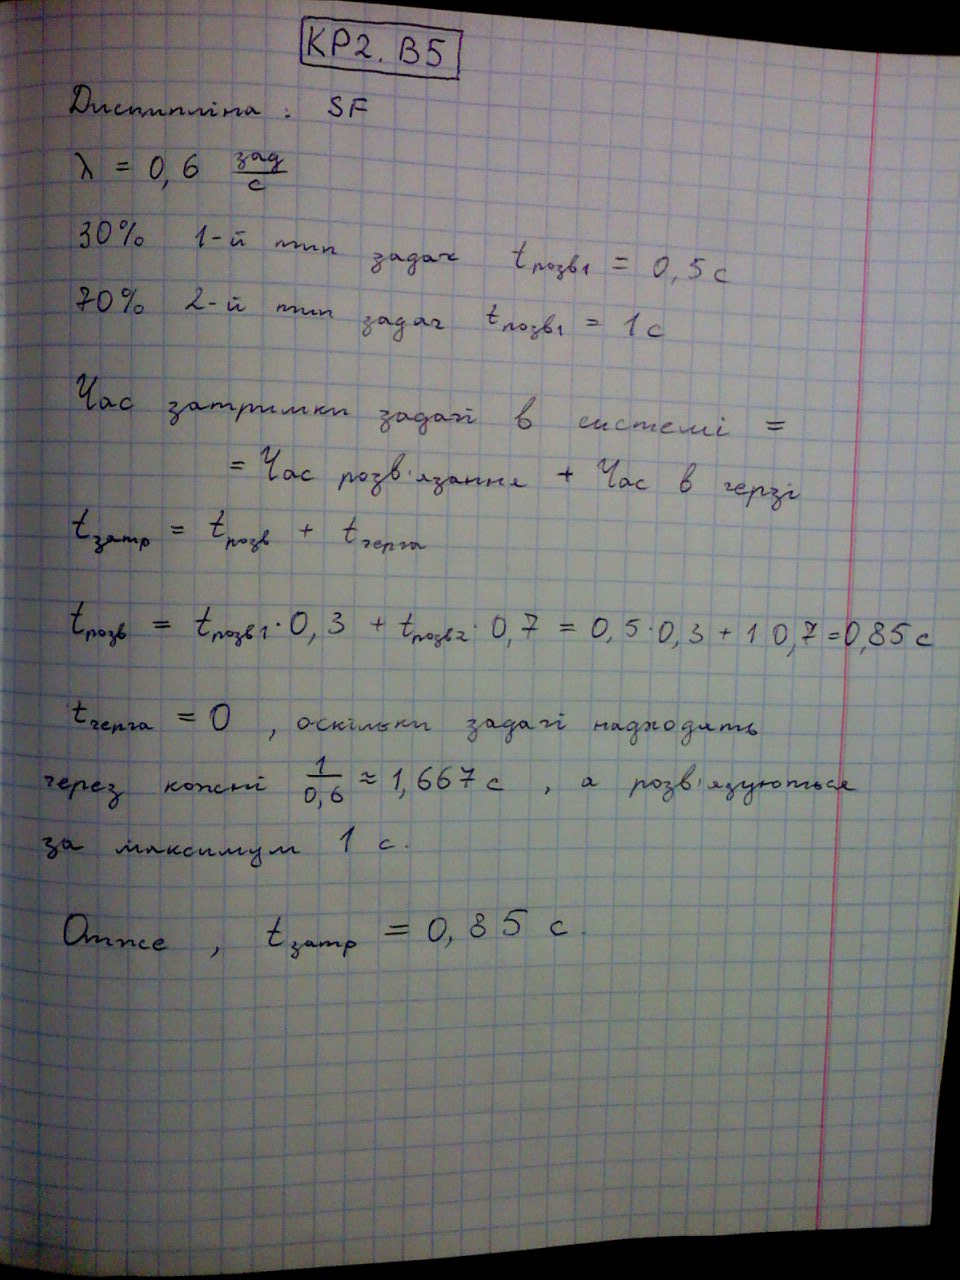 КР2. В5
Дисципліна : SF
λ = 0,6 зад/с
30% 1-й тип задач tрозв1 = 0,5 с
70% 2-й тип задач tрозв1 = 1 с
Час затримки задачі в системі =
= Час розв'язання + Час в черзі
tзатр = tрозв + tчерга
tрозв = tрозв1 · 0,3 + tрозв2 · 0,7 = 0,5 · 0,3 + 1 0,7 = 0,85 с
tчерга = 0 , оскільки задачі надходять
через кожні 1/0,6 ≈ 1,667 с , а розв'язуються
за максимум 1 с.
Отже , tзатр = 0,85 с.